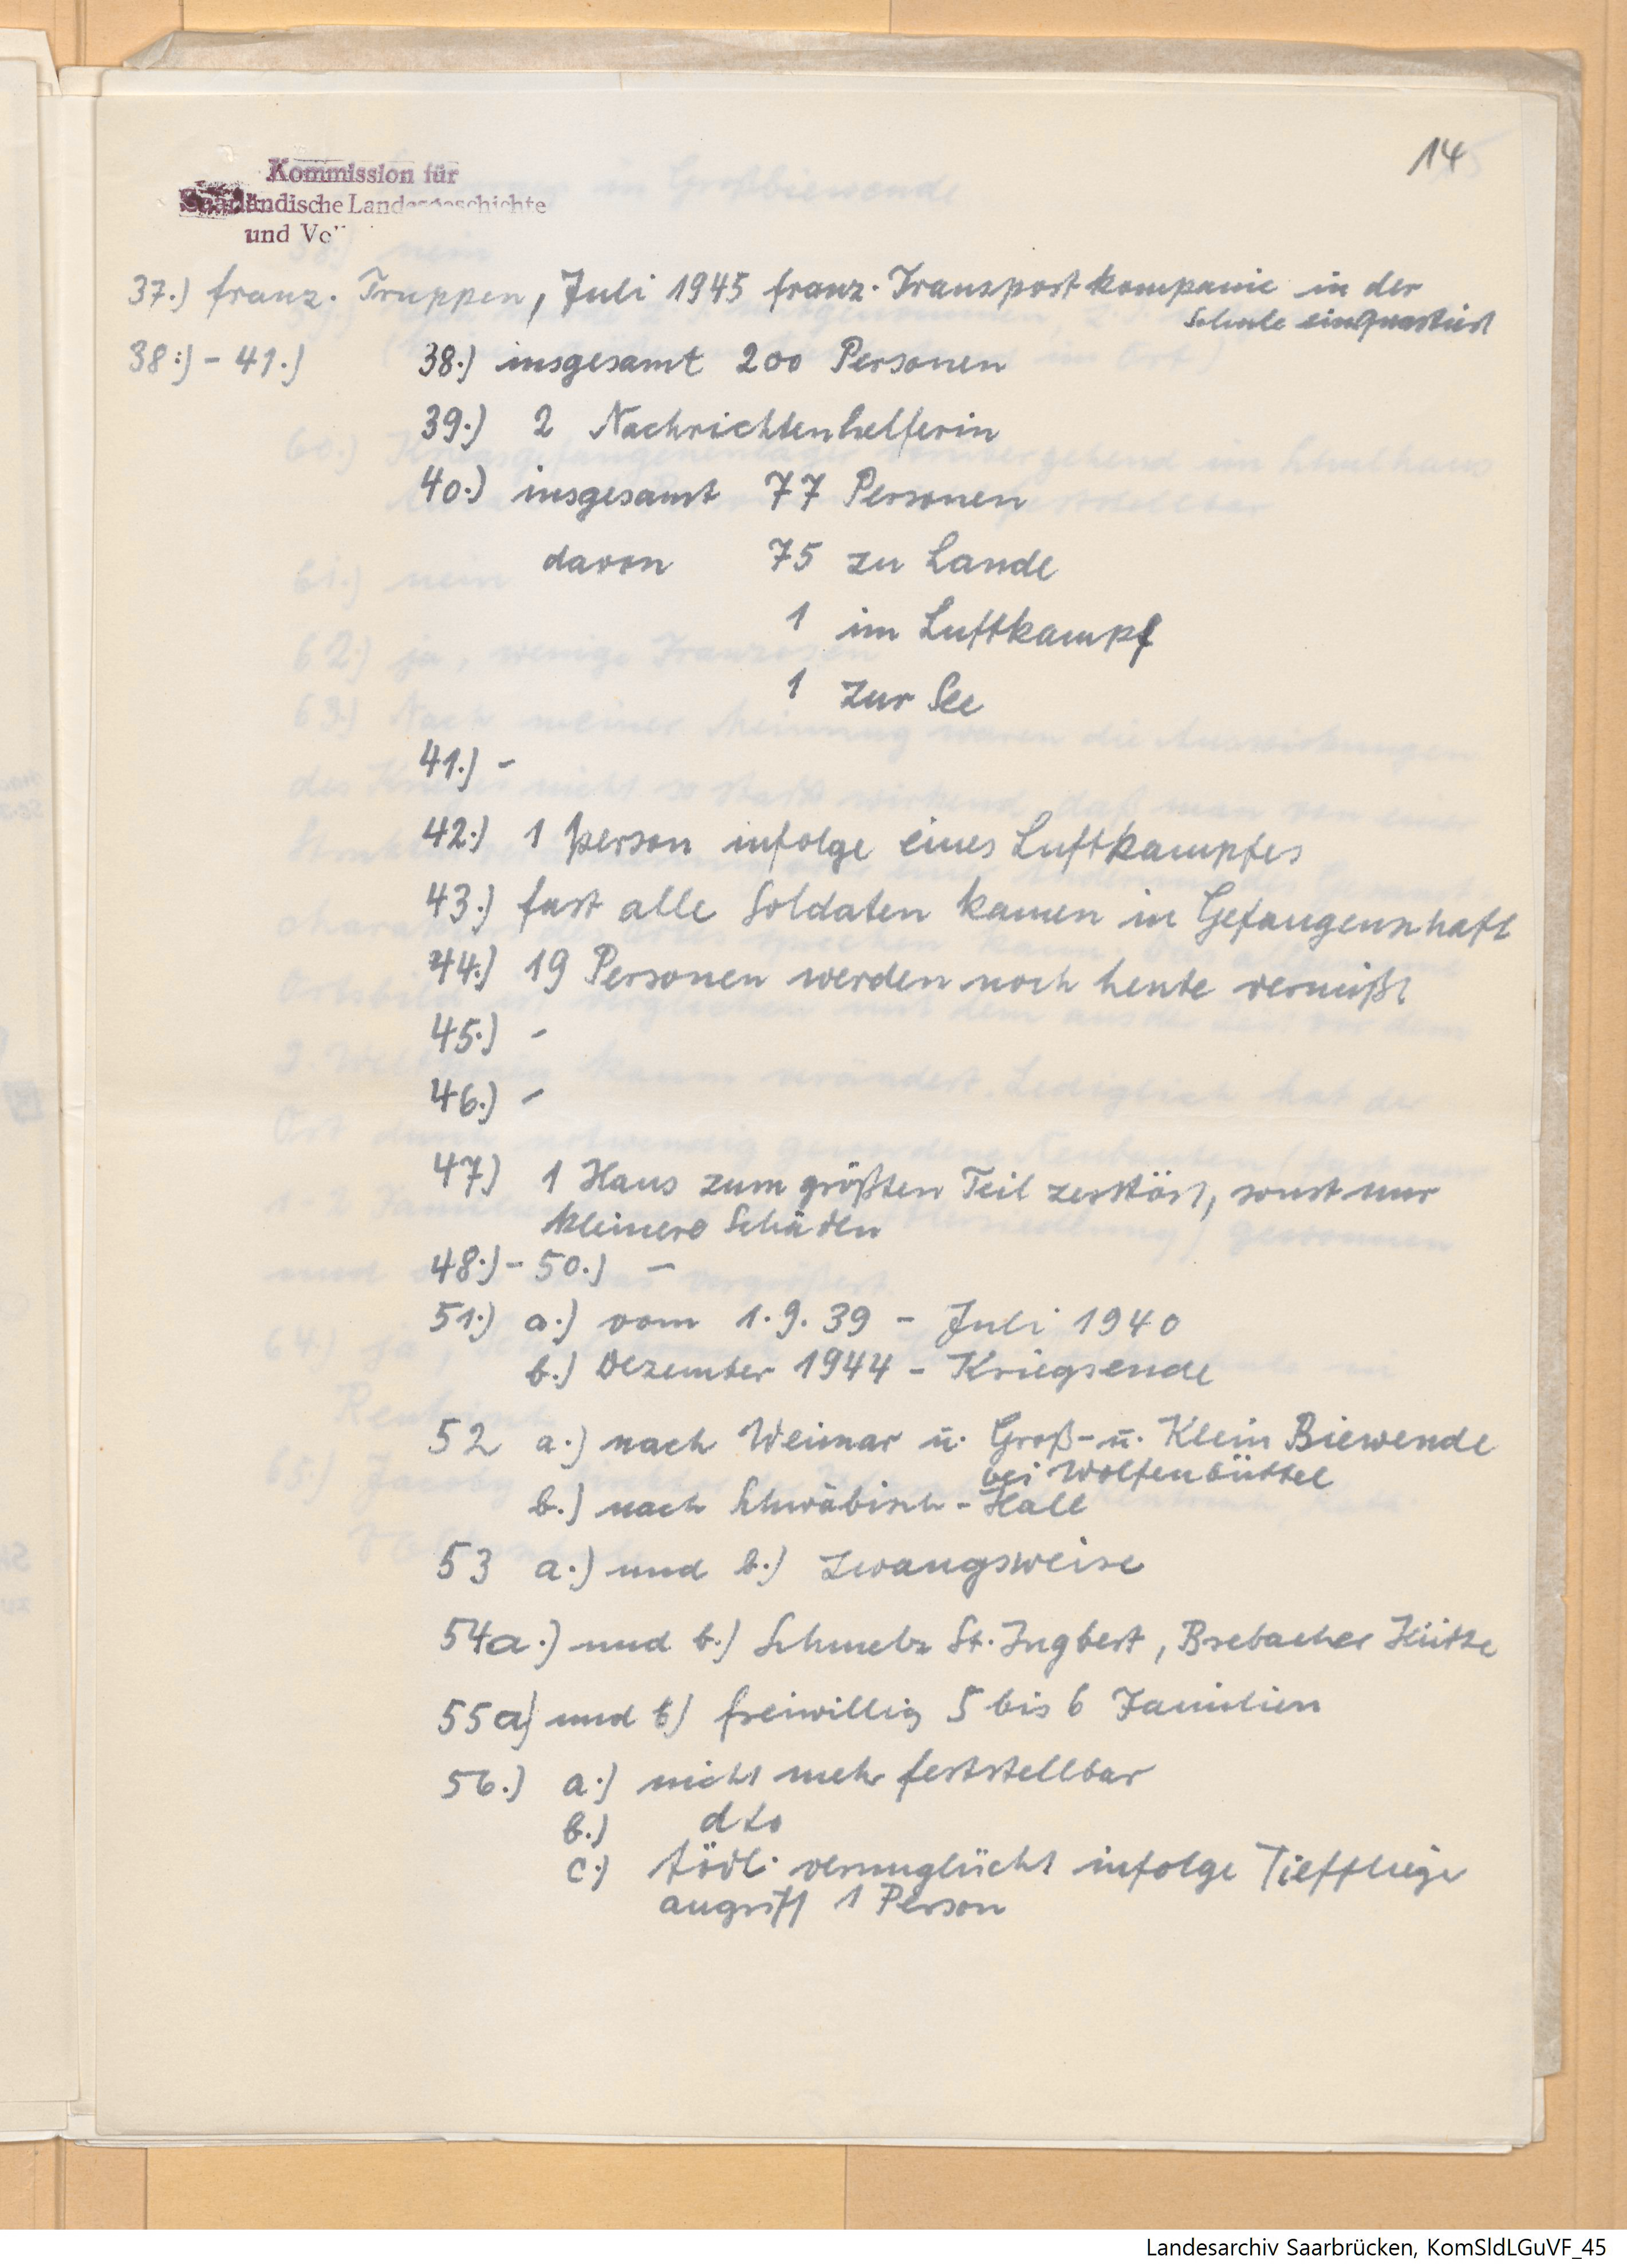 14
Kommission für
Saarländische Landesgeschichte
und Vo
37.) franz. Truppen, Juli 1945 franz. Transportkompanie in der
Schule einquartiert
38.) - 41.) 38.) insgesamt 200 Personen
39.) 2 Nachrichtenhelferin
40.) insgesamt 77 Personen
davon 75 zu Lande
1 im Luftkampf
1 zur See
41.) -
42.) 1 Person infolge eines Luftkampfes
43.) fast alle Soldaten kamen in Gefangenschaft
44.) 19 Personen werden noch heute vermißt
45.) -
46.) -
47) 1 Haus zum größten Teil zerstört, sonst nur
kleinere Schäden
48.) - 50.) -
51.) a.) vom 1.9.39 - Juli 1940
b.) Dezember 1944 - Kriegsende
52 a.) nach Weimar u. Groß- u. Klein Biewende
bei Wolfenbüttel
b.) nach Schwäbisch-Hall
53 a.) und b.) zwangsweise
54a.) und b.) Schmelz St. Ingbert, Brebacher Hütte
55a) und b) freiwillig 5 bis 6 Familien
56.) a.) nicht mehr feststellbar
b.) dto
c.) tödl. verunglückt infolge Tiefflieger
angriff 1 Person
Landesarchiv Saarbrücken, KomSldLGuVF_45